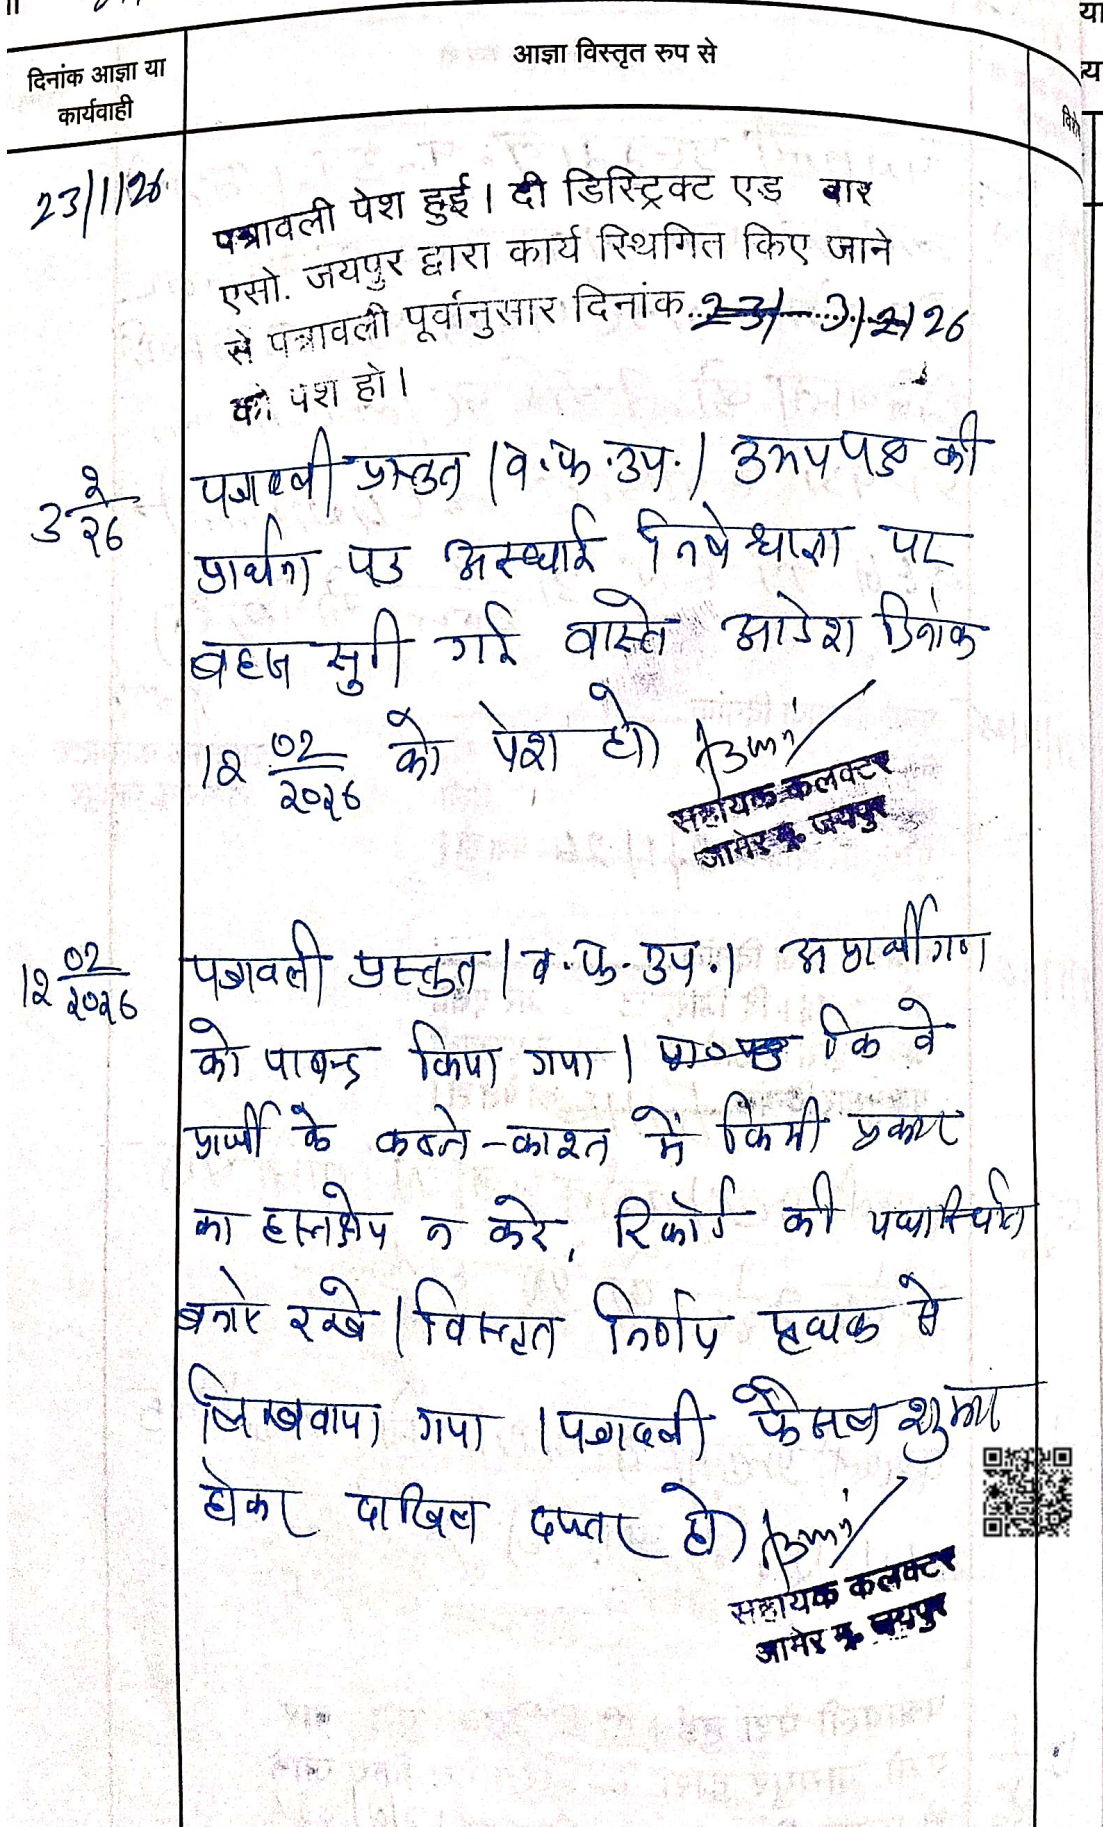 दिनांक आज्ञा या
कार्यवाही
आज्ञा विस्तृत रुप से
या
य
23/1/26
पत्रावली पेश हुई। दी डिस्ट्रिक्ट एड बार
एसो. जयपुर द्वारा कार्य स्थिगित किए जाने
से पत्रावली पूर्वानुसार दिनांक 3/2/26
को पेश हो।
3 2/26
पत्रावली प्रस्तुत। व.फ.उप.। उभयपक्ष की
प्रार्थना पत्र अस्थाई निषेधाज्ञा पर
बहस सुनी गई वास्ते आदेश दिनांक
12 02/2026 को पेश हो।
सहायक कलक्टर
आमेर मु. जयपुर
12 02/2026
पत्रावली प्रस्तुत। व.फ.उप.। अप्रार्थीगण
को पाबन्द किया गया। कि वे
प्रार्थी के कब्जे-काश्त में किसी प्रकार
का हस्तक्षेप न करे, रिकॉर्ड की यथास्थिति
बनाए रखे। विस्तृत निर्णय पृथक से
लिखवाया गया। पत्रावली फैसल शुमार
होकर दाखिल दफ्तर हो।
सहायक कलक्टर
आमेर मु. जयपुर